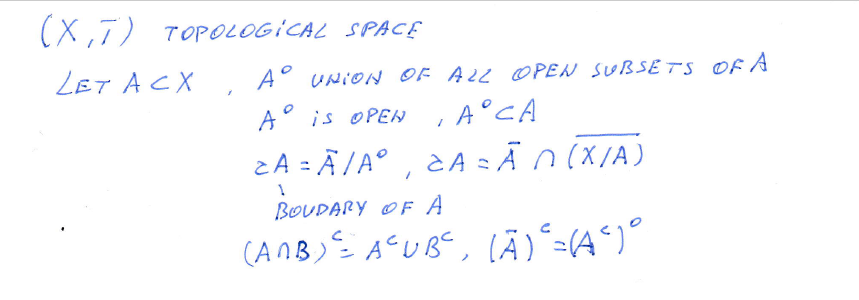 (X,T) TOPOLOGiCAL SPACE
LET A⊂X , A° UNION OF ALL OPEN SUBSETS OF A
A° is OPEN , A°⊂A
∂A = Ā/A° , ∂A = Ā ∩ (\overline{X/A})
BOUDARY OF A
(A∩B)ᶜ = Aᶜ∪Bᶜ, (Ā)ᶜ=(Aᶜ)°